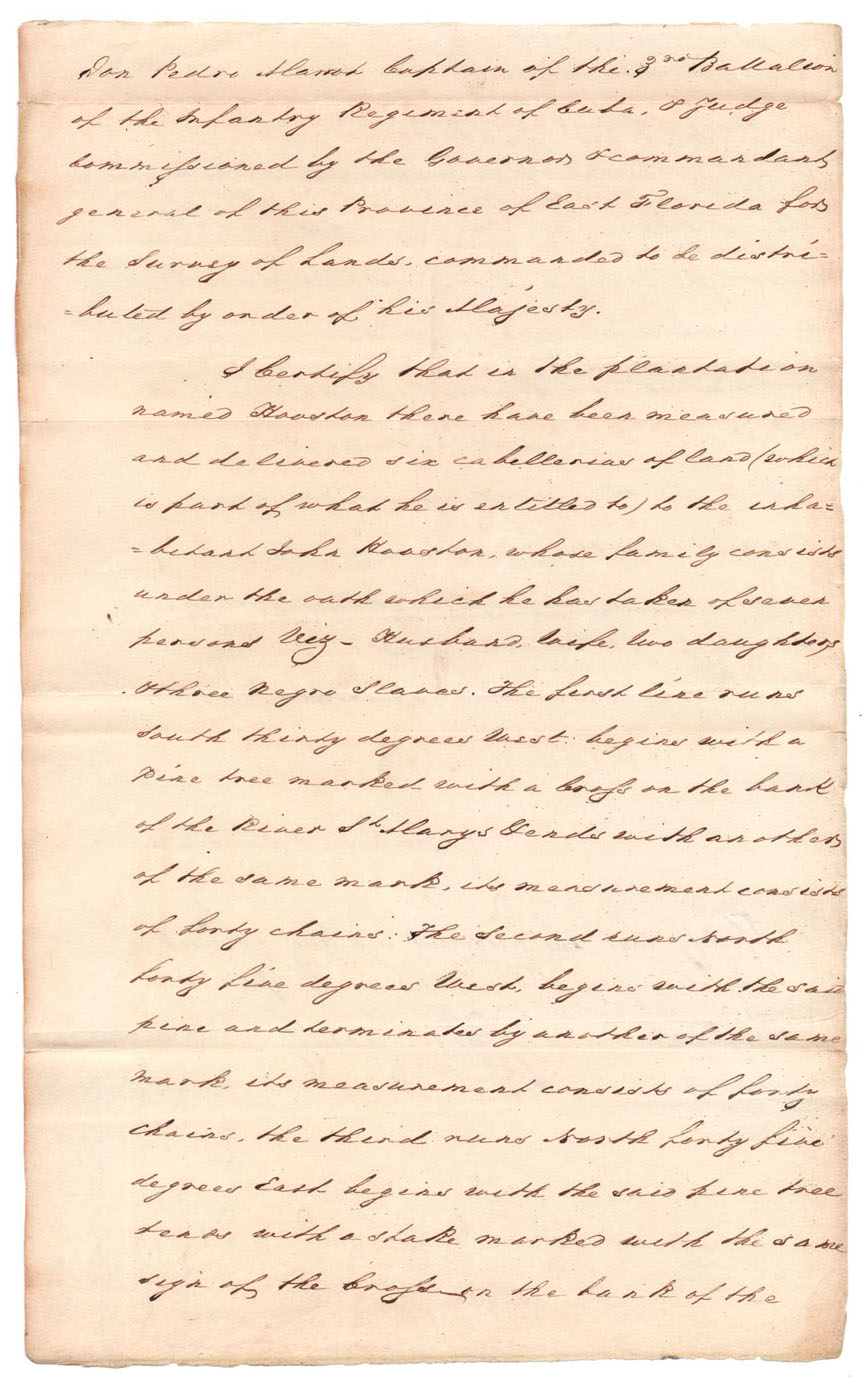 Don Pedro Marrot Captain of the 3rd Battalion
of the Infantry Regiment of Cuba, & Judge
Commissioned by the Governor & commandant
general of this Province of East Florida for
the Survey of Lands, commanded to be distri=
=buted by order of his Majesty.
I Certify that in the plantation
named Houston there have been measured
and delivered six cabellerias of land (which
is part of what he is entitled to) to the inha=
=bitant John Houston, whose family consists
under the oath which he has taken of seven
persons Viz - Husband, Wife, two daughters
& three Negro Slaves. The first line runs
South thirty degrees West: begins with a
Pine tree marked with a Cross on the bank
of the River St Marys & ends with another
of the same mark, its measurement consists
of forty chains: The Second runs North
forty five degrees West, begins with the said
pine and terminates by another of the same
mark, its measurement consists of forty
chains, the third runs North forty five
degrees East begins with the said pine tree
& ends with a stake marked with the same
sign of the Cross on the bank of the